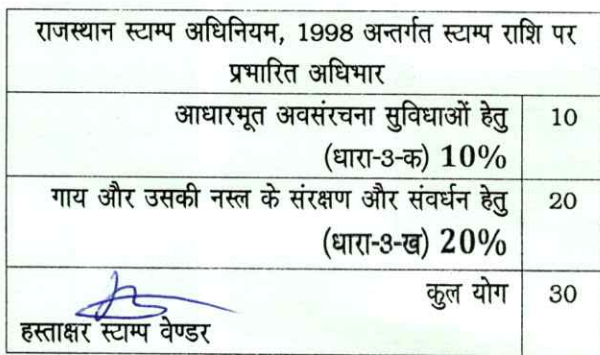 राजस्थान स्टाम्प अधिनियम, 1998 अन्तर्गत स्टाम्प राशि पर
प्रभारित अधिभार
आधारभूत अवसंरचना सुविधाओं हेतु 10
(धारा-3-क) 10%
गाय और उसकी नस्ल के संरक्षण और संवर्धन हेतु 20
(धारा-3-ख) 20%
कुल योग 30
हस्ताक्षर स्टाम्प वेण्डर